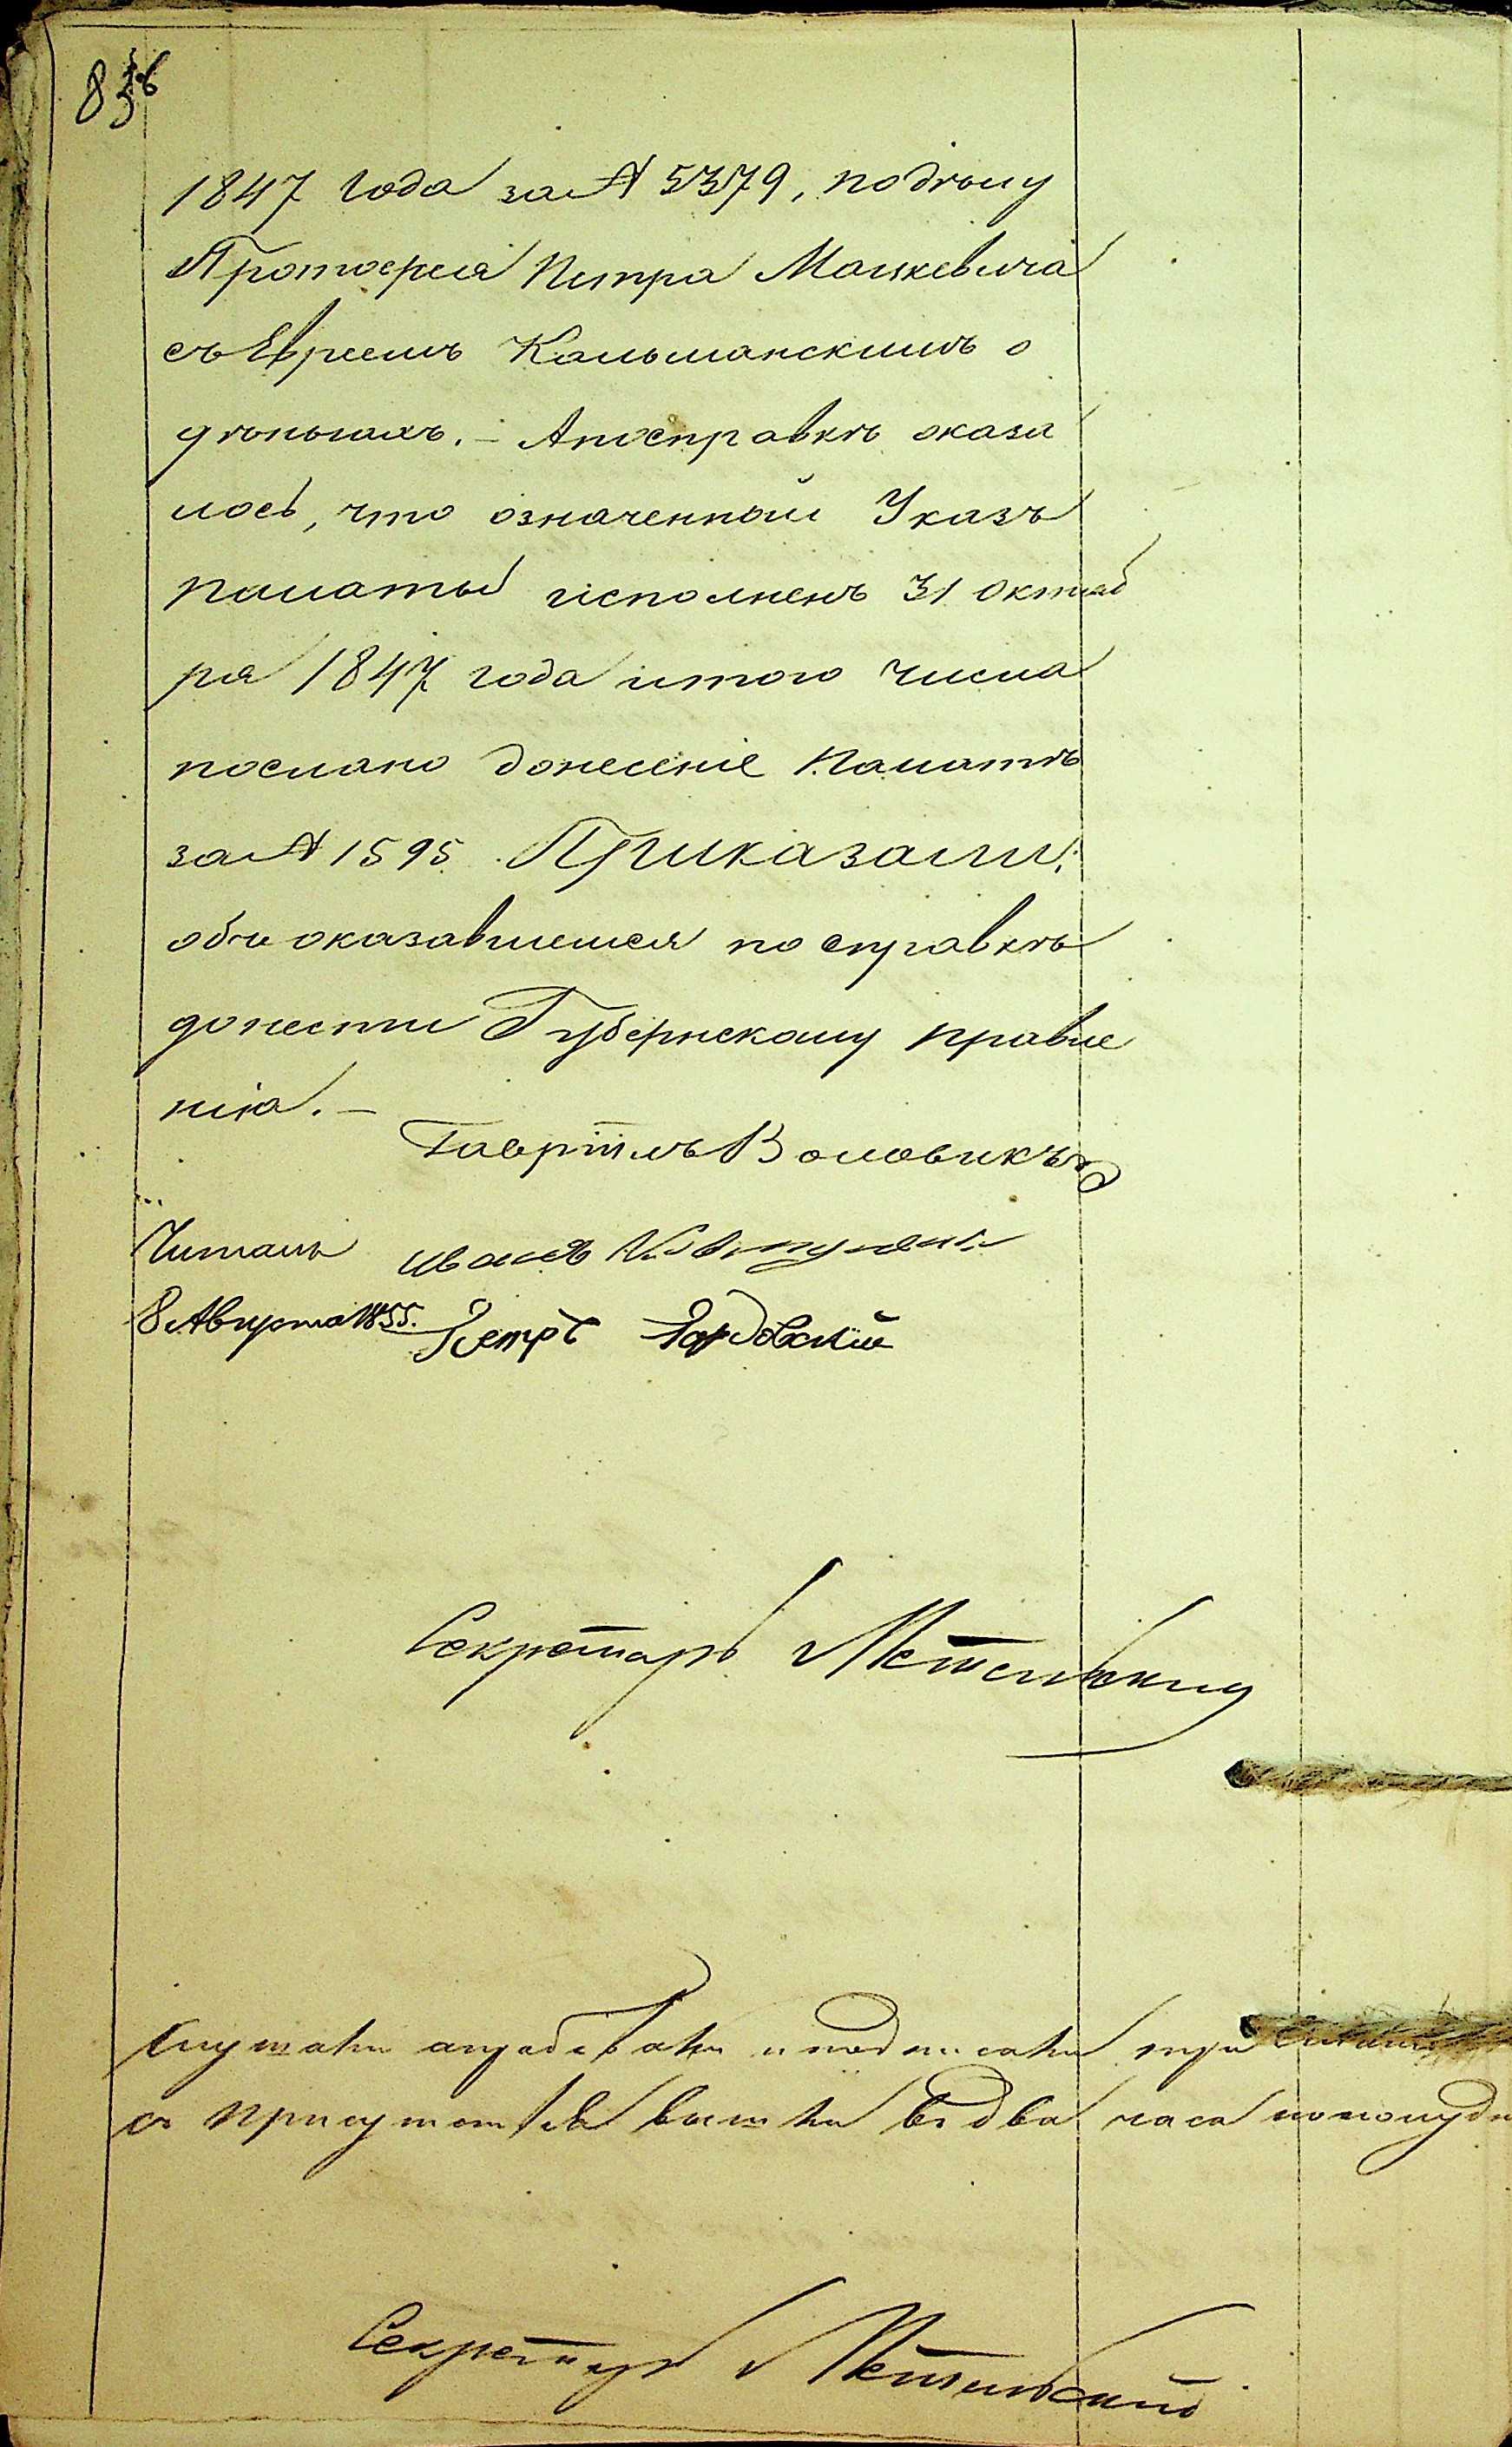 836
1847 года за № 5379, по дѣлу
Протоерея Петра Мацкевича
съ Евреемъ Кальманскимъ о
дѣньгахъ. – А по справкѣ оказа
лось, что означенный Указъ
палаты исполненъ 31 Октяб
ря 1847 года и того числа
послано донесеніе Палатѣ
за № 1595. Приказали:
объ оказавшемся по справкѣ
донести Губернскому правле
нію. –
Гавріилъ Воловикъ
Читалъ Иванъ
8 Августа 1855. Петръ
Секретарь
Слушали и подписали три
съ присутствія вышли въ два часа пополудни
Секретарь